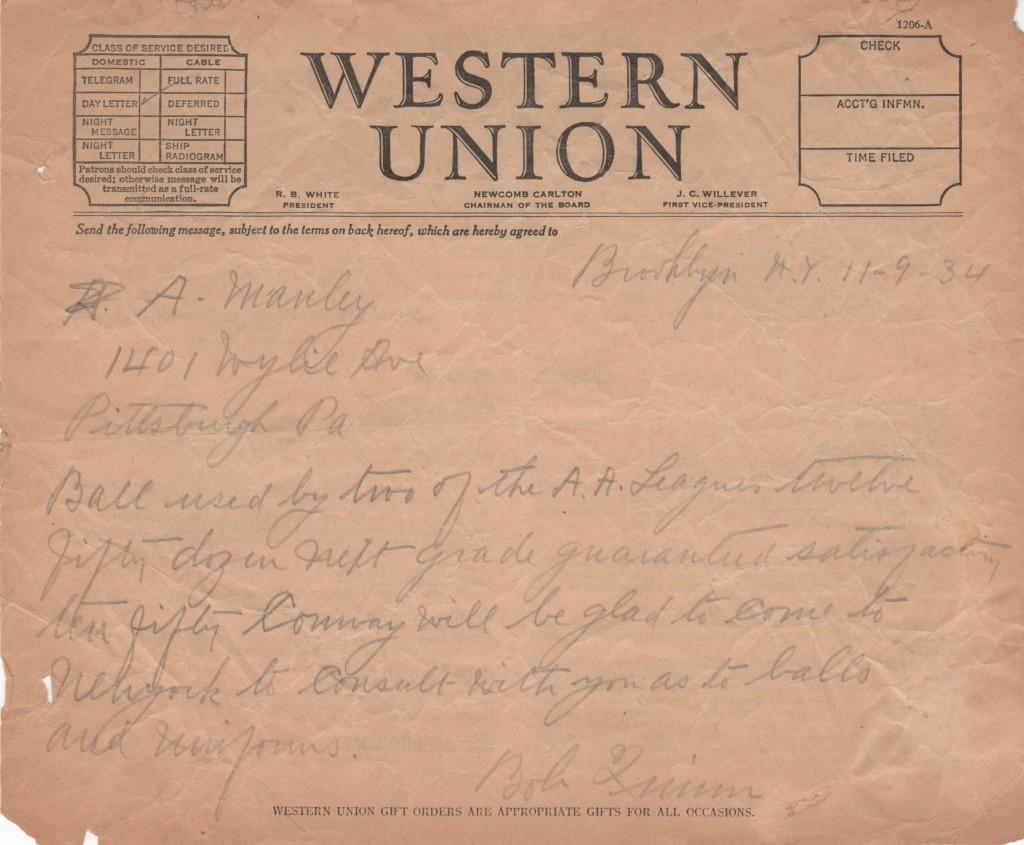 1206-A
CLASS OF SERVICE DESIRED
DOMESTIC CABLE
TELEGRAM FULL RATE
DAY LETTER DEFERRED
NIGHT MESSAGE NIGHT LETTER
NIGHT LETTER SHIP RADIOGRAM
Patrons should check class of service
desired; otherwise message will be
transmitted as a full-rate
communication.
WESTERN
UNION
R. B. WHITE
PRESIDENT
NEWCOMB CARLTON
CHAIRMAN OF THE BOARD
J. C. WILLEVER
FIRST VICE-PRESIDENT
CHECK
ACCT'G INFMN.
TIME FILED
Send the following message, subject to the terms on back hereof, which are hereby agreed to
Brooklyn N.Y. 11-9-34
A. Manley
1401 Wylie Ave
Pittsburgh Pa
Ball used by two of the A.A. Leagues twelve
fifty dozen next grade guaranteed satisfactory
ten fifty Conway will be glad to come to
Newyork to consult with you as to balls
and uniforms.
Bob Quinn
WESTERN UNION GIFT ORDERS ARE APPROPRIATE GIFTS FOR ALL OCCASIONS.